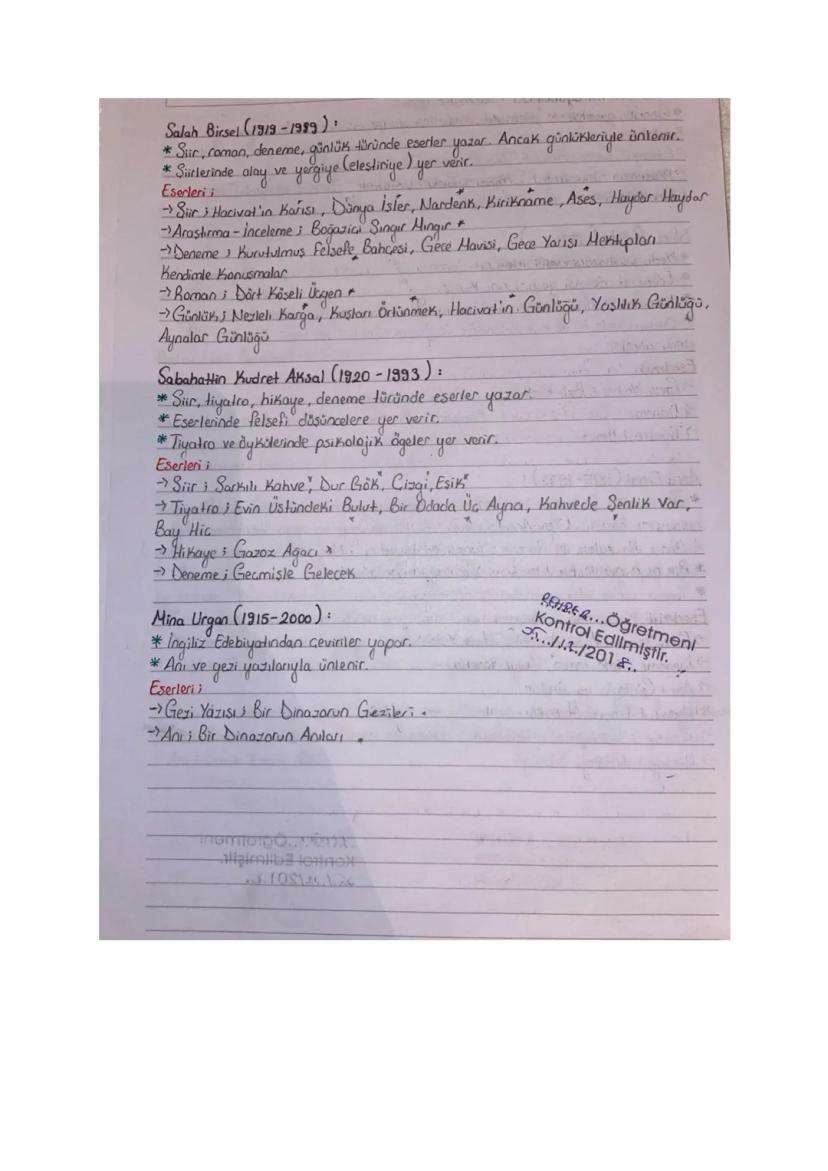 Salah Birsel (1919-1999) :
* Şiir, roman, deneme, günlük türünde eserler yazar. Ancak günlükleriyle ünlenir.
* Şiirlerinde alay ve yergiye (eleştiriye) yer verir.
Eserleri ;
→ Şiir ; Hacivat'ın Karısı, Dünya İsler, Nardenk, Kirikname, Ases, Haydar Haydar
→ Araştırma - İnceleme ; Boğaziçi Sıngır Mıngır *
→ Deneme ; Kurutulmuş Felsefe Bahçesi, Gece Mavisi, Gece Yarısı Mektupları
Kendimle Konuşmalar
→ Roman ; Dört Köşeli Üçgen *
→ Günlük ; Nezleli Karga, Kuşları Örtünmek, Hacivat'ın Günlüğü, Yaşlılık Günlüğü,
Aynalar Günlüğü
Sabahattin Kudret Aksal (1920-1993) :
* Şiir, tiyatro, hikaye, deneme türünde eserler yazar.
* Eserlerinde felsefi düşüncelere yer verir.
* Tiyatro ve öykülerinde psikolojik ögeler yer verir.
Eserleri ;
→ Şiir ; Şarkılı Kahve, Dur Gök, Çizgi, Eşik
→ Tiyatro ; Evin Üstündeki Bulut, Bir Odada Üç Ayna, Kahvede Şenlik Var,
Bay Hiç
→ Hikaye ; Gazoz Ağacı *
→ Deneme ; Geçmişle Gelecek
Mina Urgan (1915-2000) :
* İngiliz Edebiyatından çeviriler yapar.
* Anı ve gezi yazılarıyla ünlenir.
Eserleri ;
→ Gezi Yazısı ; Bir Dinazorun Gezileri .
→ Anı ; Bir Dinazorun Anıları .
Öğretmeni
Kontrol Edilmiştir.
/12/2018